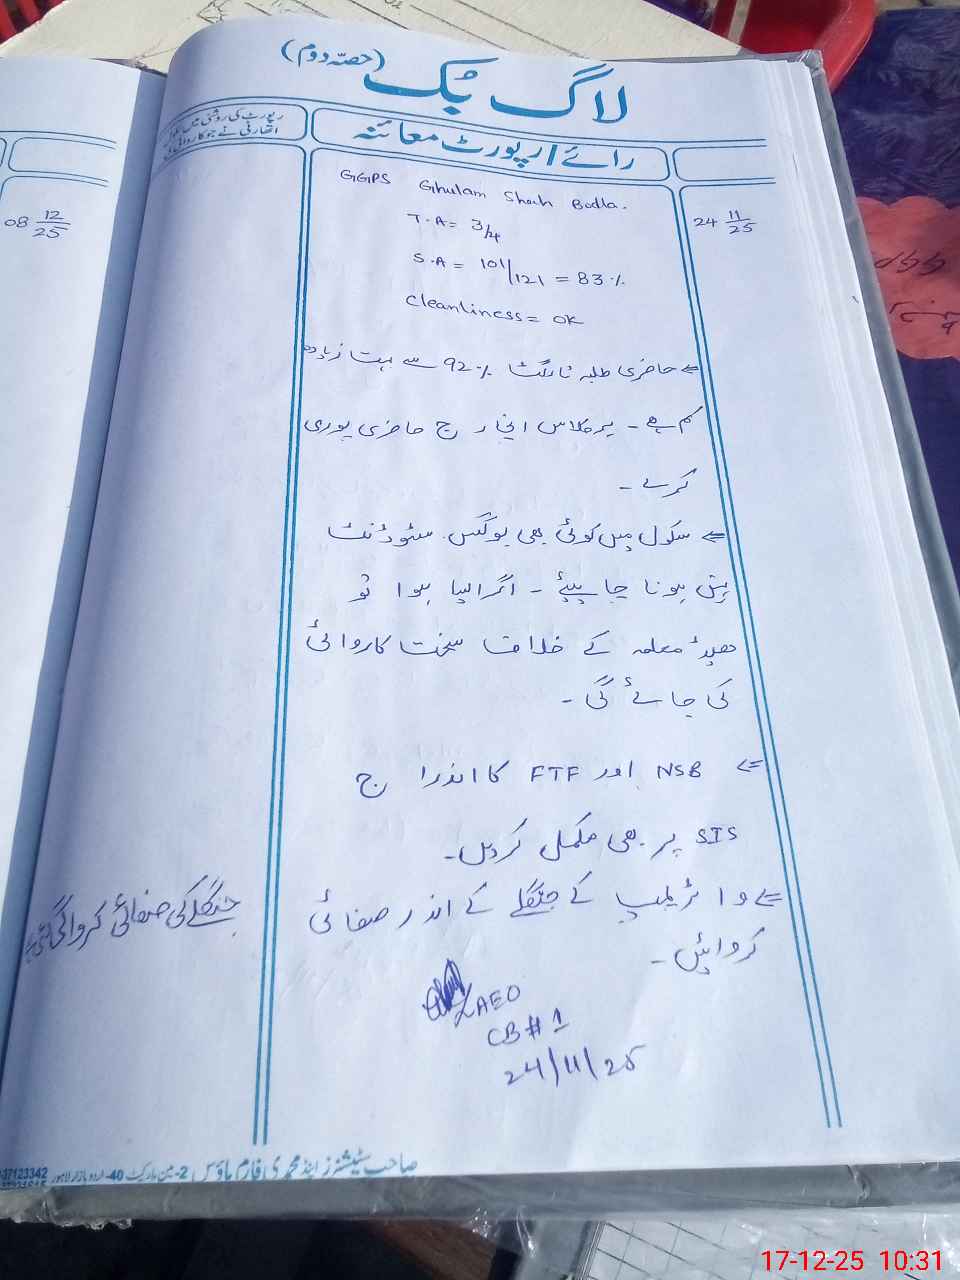 لاگ بُک (حصّہ دوم)
رپورٹ کی روشنی میں
اتھارٹی نے جو کاروائی کی
رائے / رپورٹ معائنہ
08 12/25
24 11/25
GGPS Ghulam Shah Bodla.
T.A = 3/4
S.A = 101/121 = 83%
Cleanliness = OK
⇐ حاضری طلبہ ٹارگٹ 92% سے بہت زیادہ
کم ہے - ہر کلاس انچارج حاضری پوری
کرے -
⇐ سکول میں کوئی بھی بوگس سٹوڈنٹ
نہیں ہونا چاہیئے - اگر ایسا ہوا تو
ہیڈ معلمہ کے خلاف سخت کاروائی
کی جائے گی -
⇐ NSB اور FTF کا اندراج
SIS پر بھی مکمل کردیں -
⇐ واٹر پمپ کے جنگلے کے اندر صفائی
کروائیں -
جنگلے کی صفائی کروا لی گئی ہے
AEO
CB # 1
24/11/25
صاحب سٹیشنرز اینڈ محمدی فارم ہاؤس 2- مین مارکیٹ 40- اردو بازار لاہور
37123342
17-12-25 10:31